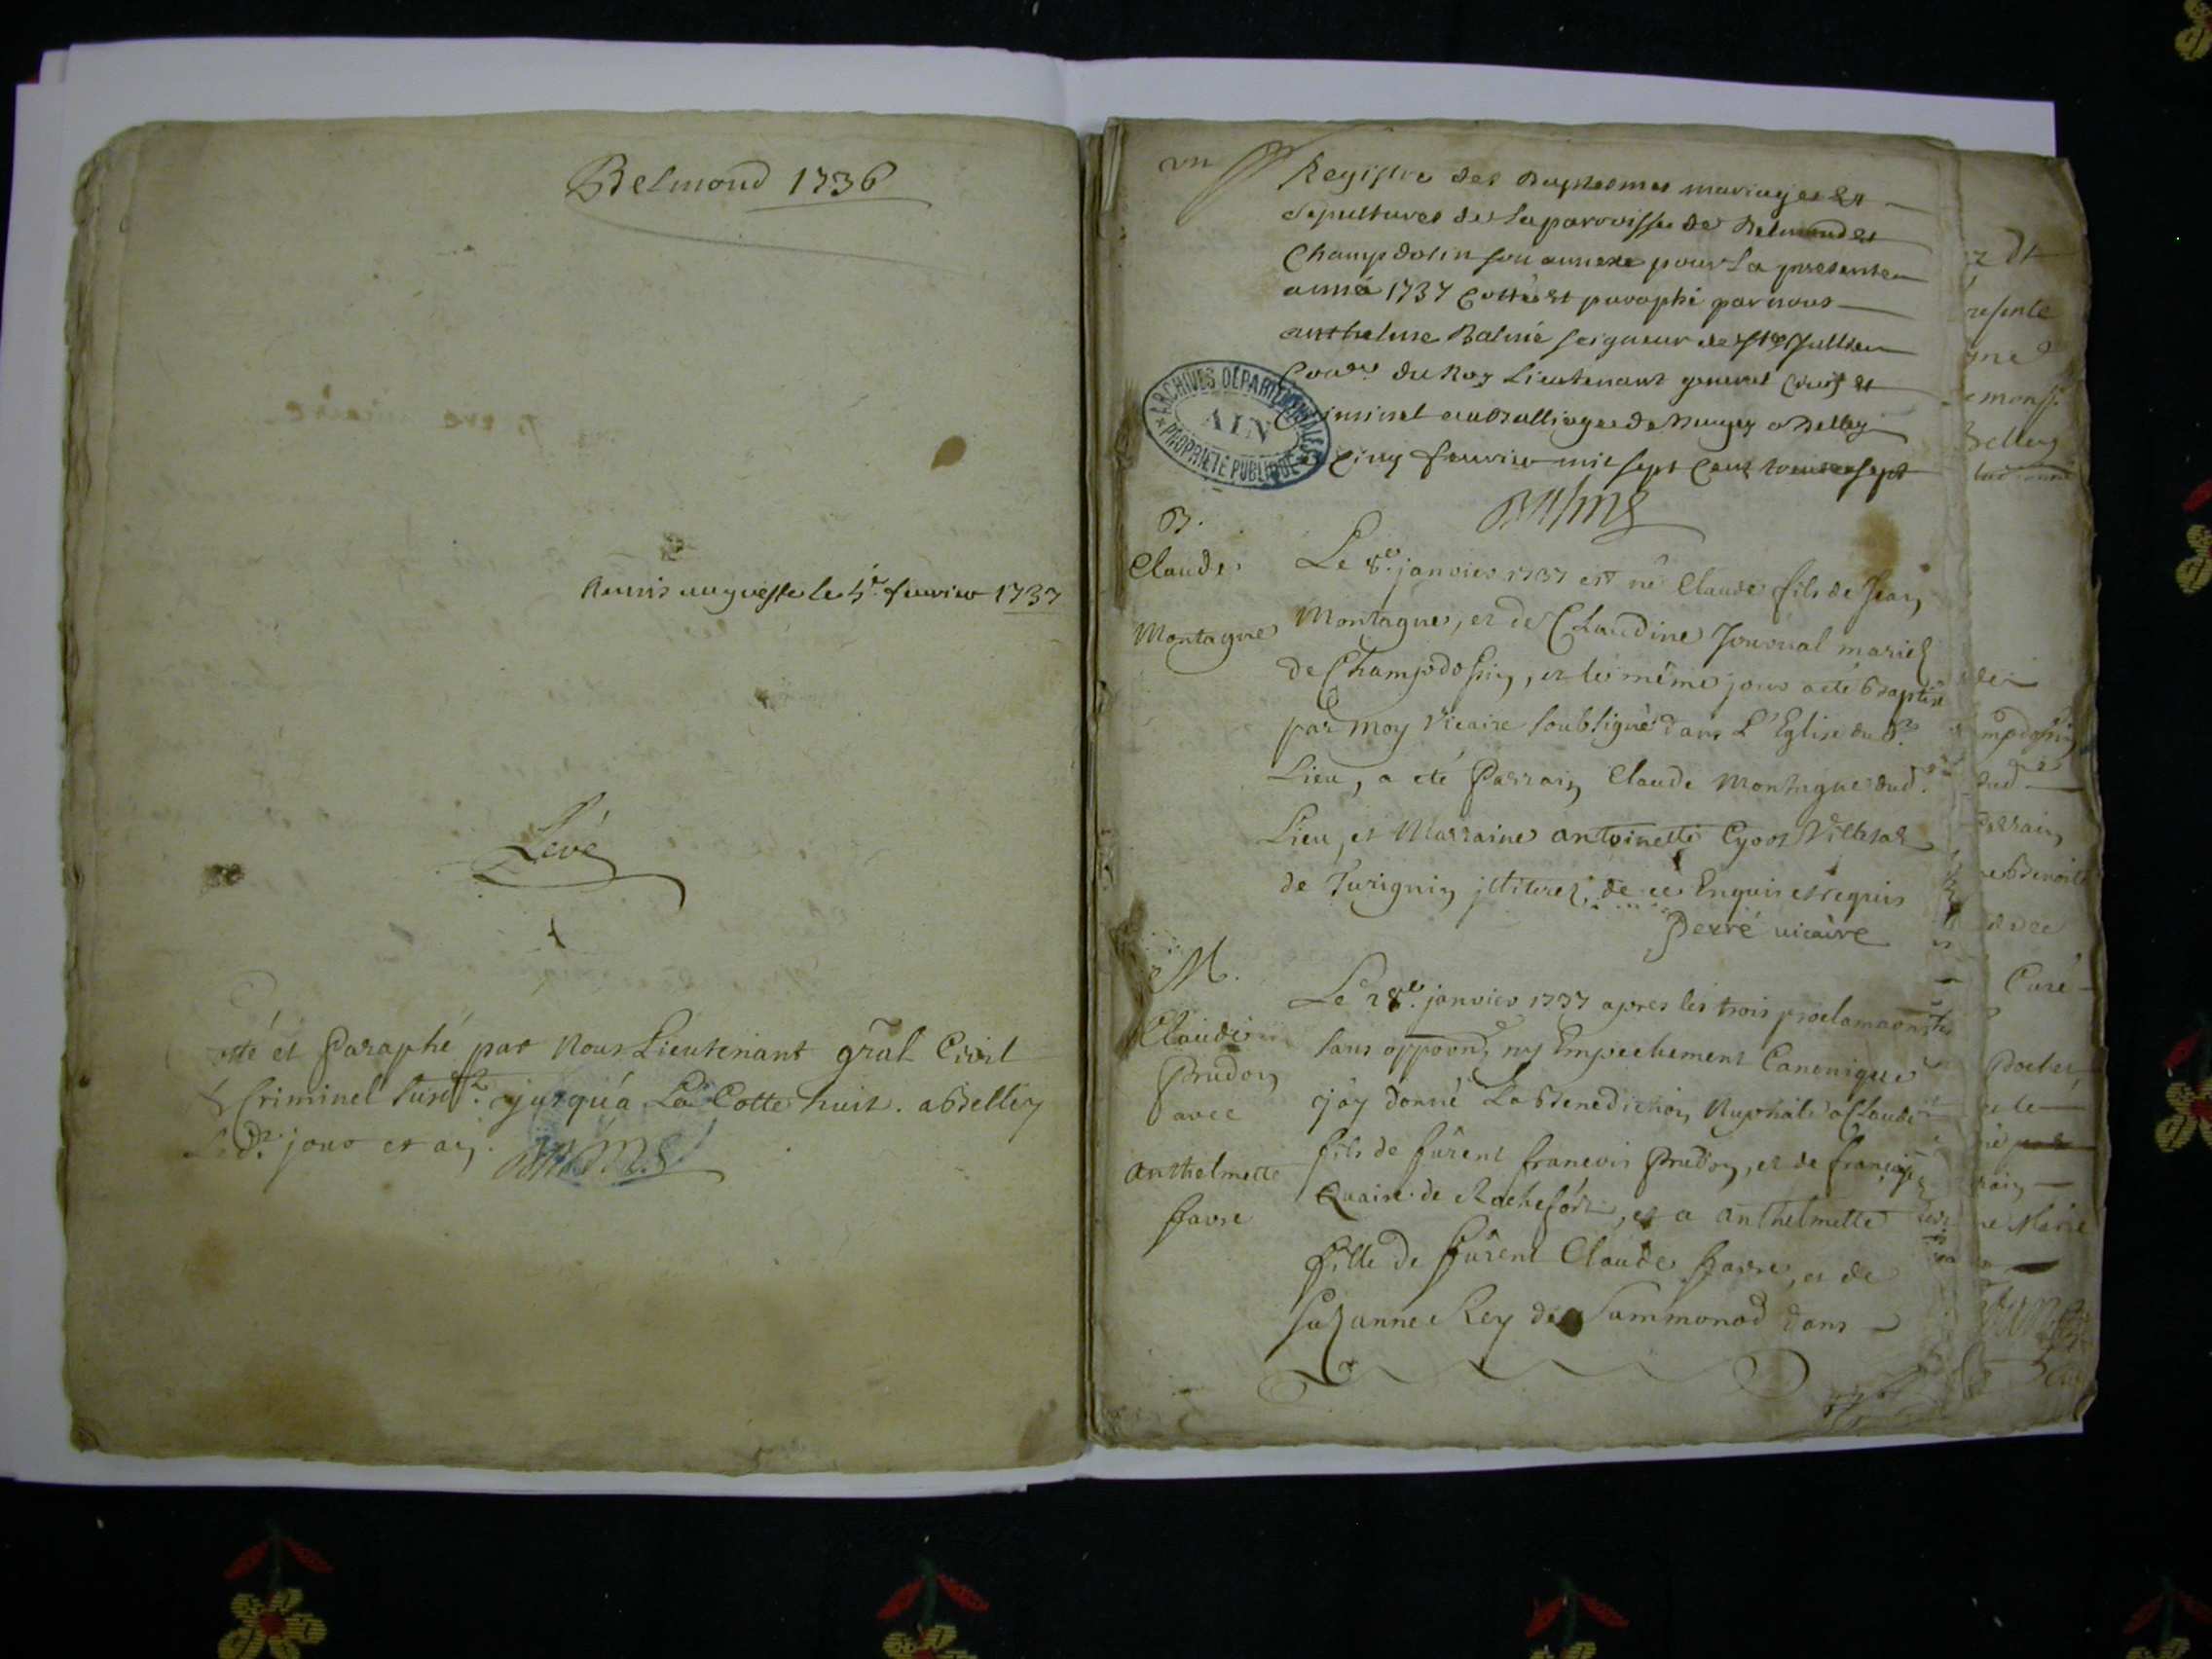 Belmond 1736
Remis au greffe le 5e. feuvrier 1737
Levé
Cotté et Paraphé par Nous Lieutenant gñal Civil
& Criminel susdt. jusqu'á La Cotte huit. a Belley
Led. jour et an.
BALME
un
Registre des Baptesmes mariages et
sepultures de la parroisse de Belmond et
Champdosin son annexe pour La presente
année 1737 Cotté et paraphé par nous
anthelme Balme seigneur de Ste Jullie
Coner. du Roy Lieutenant general Civil et
Criminel au Balliage de Bugey a Belley
cinq feuvrier mil sept cent trente sept
BALME
ARCHIVES DÉPARTEMENTALES
AIN
PROPRIÉTÉ PUBLIQUE
B.
Claude
Montagne
Le 8e. janvier 1737 est né Claude fils de Jean
Montagne, et de Claudine Jouvral mariez
de Champdossin, et le même jour a été baptisé
par moy Vicaire soubsigné dans L'Eglise dud.
Lieu, a eté Parrain Claude Montagne dud.
Lieu, et Marraine antoinette
de Turignin jlliterez, de ce Enquis et requis
Perré uicaire
M.
Claude
Prudon
avec
Anthelmette
favre
Le 28e. janvier 1737 apres les trois proclamaons
sans oppoon, ny Empechement Canonique
j'ay donné La Benediction Nuptiale a Claude
fils de fûrent francois Prudon, et de françoise
Quaire de Rochefort, et a anthelmette
fille de fûrent Claude favre, et de
Suzanne Rey de Sammonod dans
mpdossin
dud
Parrain
Curé
ne Marie